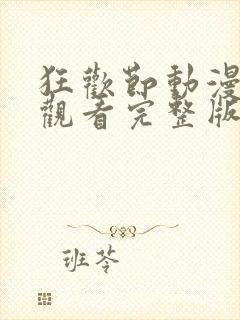 狂歡節動漫
觀看完整版
班苓